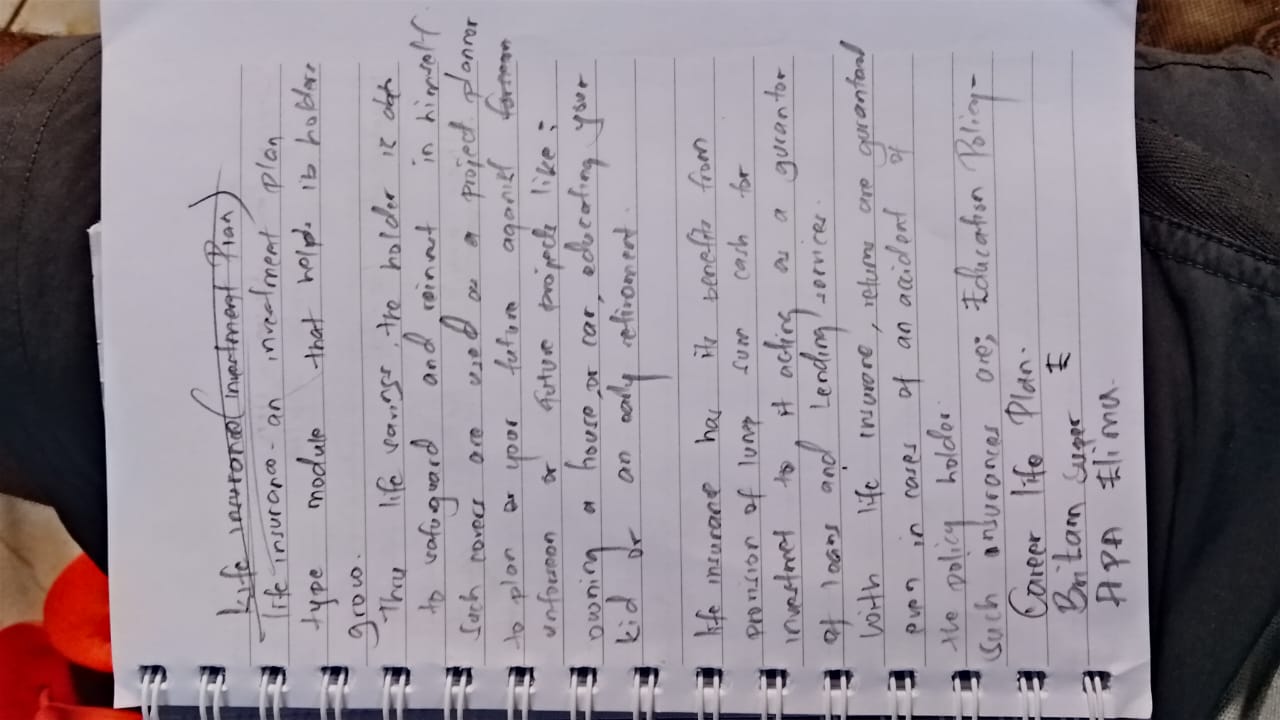 Life insurance (investment Plan)
Life insurance - an investment plan
type module that helps its holders
grow.
Thru life savings, the holder is
to safeguard and reinvest in himself
Such covers are used as a project planner
to plan or your future against
unforseen or future projects like;
owning a house, or car, educating your
kid or an early retirement.
life insurance has its benefits from
provision of lump sum cash for
investment to it acting as a gurantor
of loans and Lending services.
With life insurance, returns are guranteed
even in cases of an accident of
the policy holder.
Such insurances are; Education Policy -
Career life Plan.
Britam Super
APA Elimu.